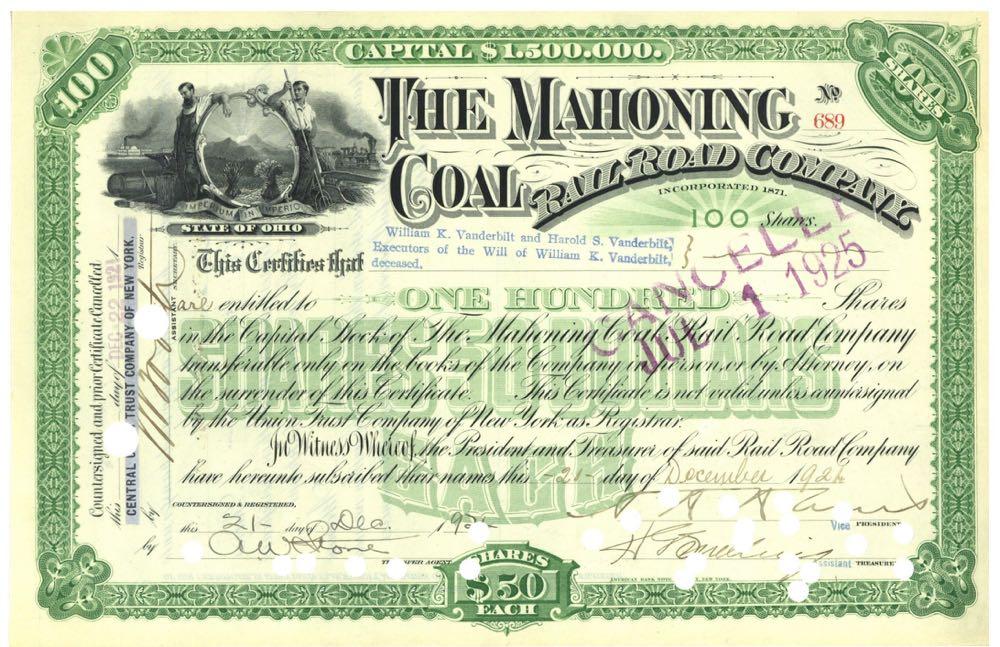 CAPITAL $1.500.000.
100
100 SHARES
THE MAHONING
No
689
COAL
RAIL ROAD COMPANY,
INCORPORATED 1871.
IMPERIUM IN IMPERIO
STATE OF OHIO
100 Shares.
William K. Vanderbilt and Harold S. Vanderbilt,
Executors of the Will of William K. Vanderbilt,
deceased,
This Certifies that
CANCELLE
JUL 1 1925
are entitled to ONE HUNDRED Shares
in the Capital Stock of The Mahoning Coal Rail Road Company
transferable only on the books of the Company in person, or by Attorney, on
the surrender of this Certificate. This Certificate is not valid unless countersigned
by the Union Trust Company of New York as Registrar.
In Witness Whereof, the President and Treasurer of said Rail Road Company
have hereunto subscribed their names this 21 day of December 192
SHARES 50 DOLLARS
EACH
Countersigned and prior Certificate Cancelled
this day of DEC 22 192
CENTRAL U TRUST COMPANY OF NEW YORK.
Registrar
by
ASSISTANT SECRETARY
COUNTERSIGNED & REGISTERED,
this 21- day of Dec. 192
by A W Stone
TRANSFER AGENT
Vice PRESIDENT
Assistant TREASURER
AMERICAN BANK NOTE NEW YORK.
SHARES
$50
EACH